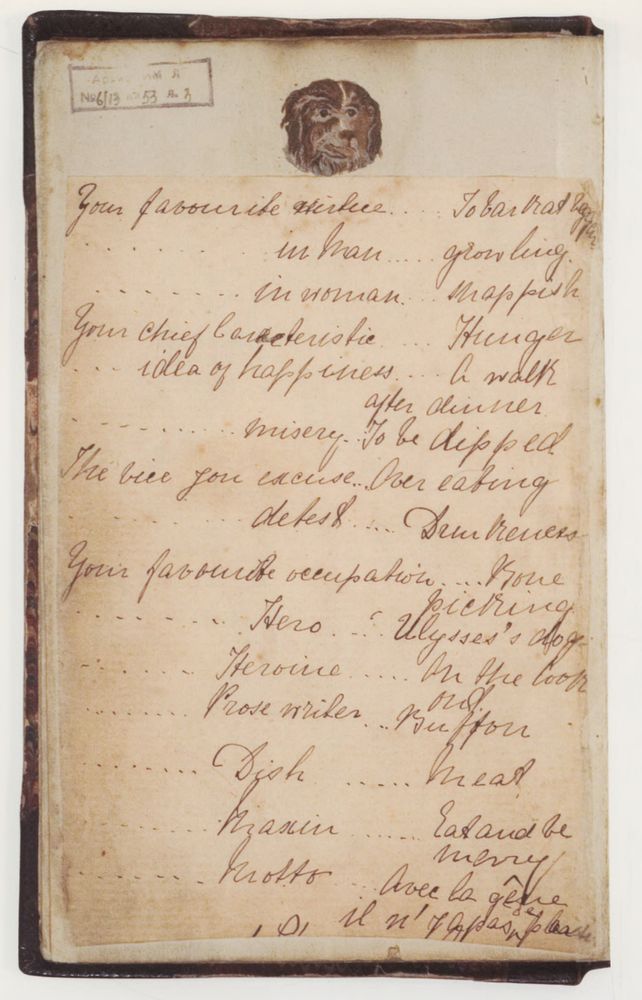 No 6/13 53 3
Your favourite virtue .... To bark at
. . . . . . . in man ..... growling.
. . . . . . . . in woman ... snappish
Your chief Caracteristic .... Hunger
. . . idea of happiness ... A walk
after dinner
. . . . . . . . . misery .. To be dipped
The vice you excuse .. Over eating
. . . . . . . . . detest .... Drunkeness
Your favourite occupation .... Bone
picking
. . . . . . . . Hero ... Ulysses's dog
. . . . . . . Heroine ..... On the look
out
. . . . . . . Prose writer ... Buffon
. . . . . . . . Dish ...... Meat
. . . . . . . . Maxim ...... Eat and be
merry
. . . . . . . . Motto ... Avec la gêne
il n'y a pas de